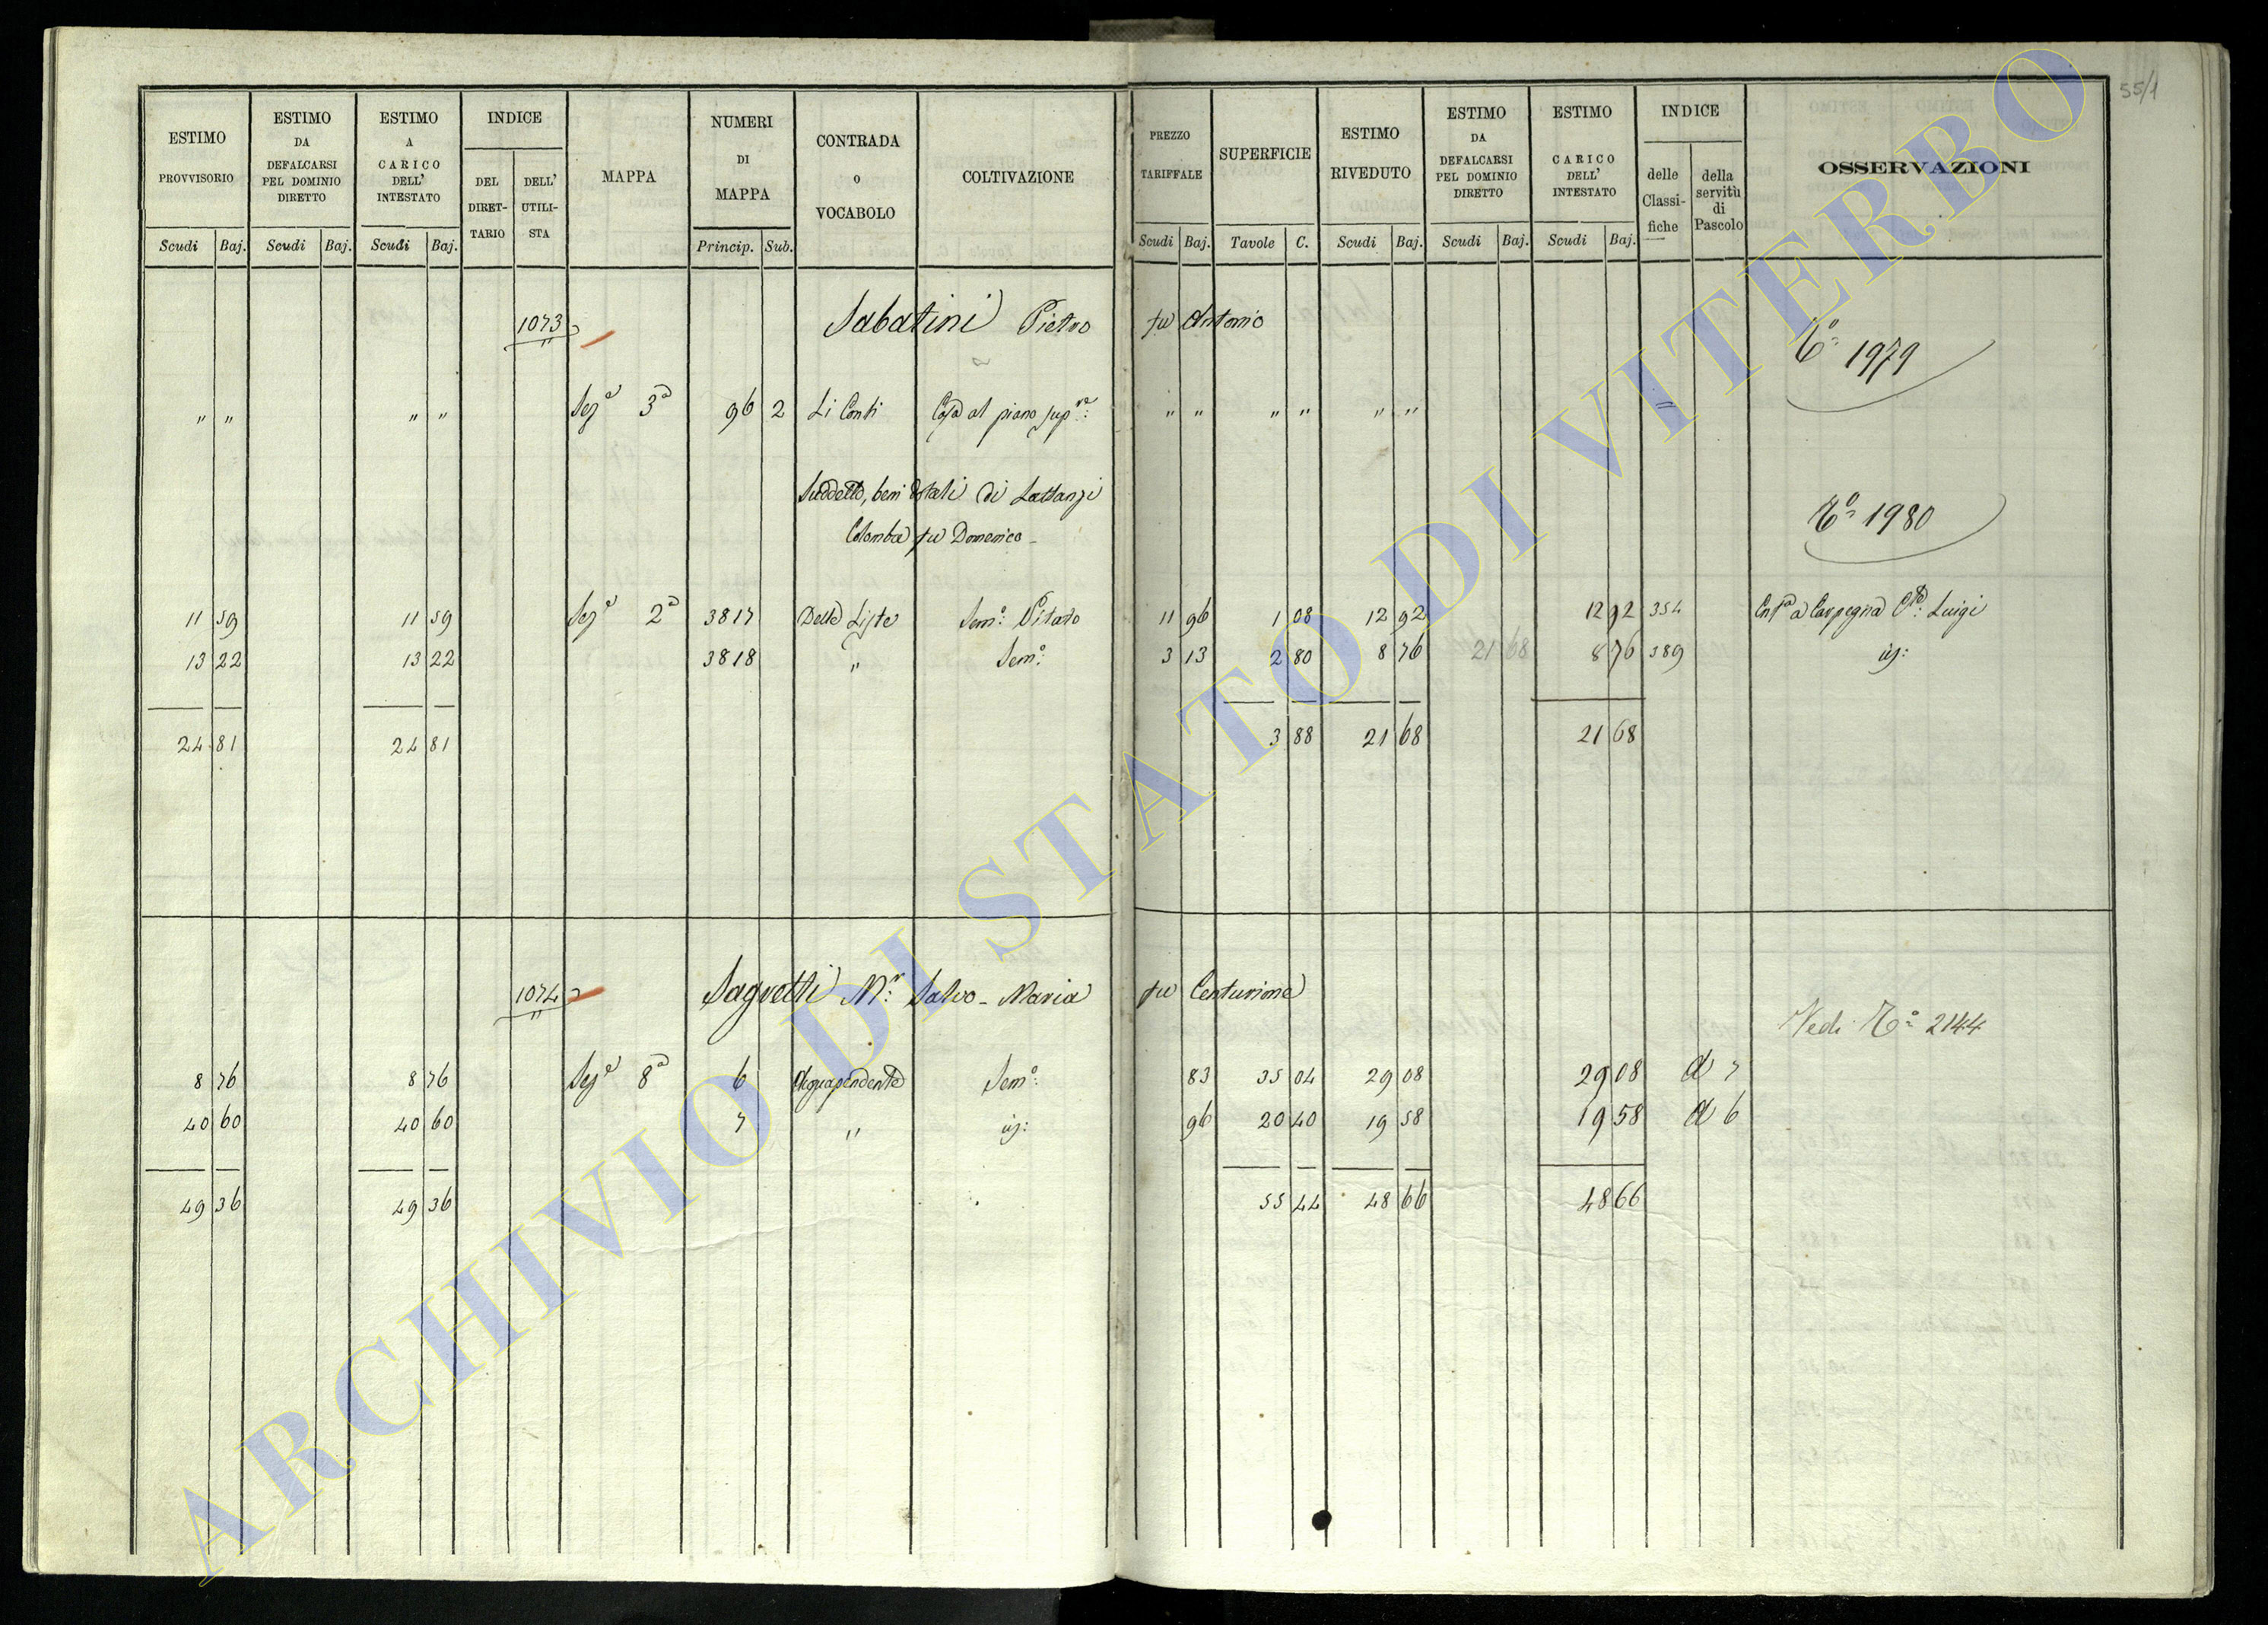 55/1
ESTIMO PROVVISORIO
ESTIMO DA DEFALCARSI PEL DOMINIO DIRETTO
ESTIMO A CARICO DELL' INTESTATO
INDICE
DEL DIRET-TARIO
DELL' UTILI-STA
MAPPA
NUMERI DI MAPPA
CONTRADA O VOCABOLO
COLTIVAZIONE
PREZZO TARIFFALE
SUPERFICIE
ESTIMO RIVEDUTO
ESTIMO DA DEFALCARSI PEL DOMINIO DIRETTO
ESTIMO CARICO DELL' INTESTATO
INDICE
delle Classi-fiche
della servitù di Pascolo
OSSERVAZIONI
Scudi Baj. Scudi Baj. Scudi Baj. Princip. Sub. Scudi Baj. Tavole C. Scudi Baj. Scudi Baj. Scudi Baj.
1073 Sabatini Pietro fu Antonio
1979
" " " " Sezª 3ª 96 2 Li Conti Casa al piano supre: " " " " " " "
Suddetto, beni dotali di Lattanzi
Colomba fu Domenico
1980
11 59 11 59 Sezª 2ª 3817 Delle Liste Semº: Vitato 11 96 1 08 12 92 12 92 354 Entª a Carpegna Cte: Luigi
13 22 13 22 3818 " Semº: 3 13 2 80 8 76 21 68 8 76 389
24 81 24 81 3 88 21 68 21 68
1074 Sagretti Mr: Salvo-Maria fu Centurione
Vedi 2144
8 76 8 76 Sezª 8ª 6 Acquapendente Semº: 83 35 04 29 08 29 08 A 7
40 60 40 60 7 " 96 20 40 19 58 19 58 A 6
49 36 49 36 55 44 48 66 48 66
ARCHIVIO DI STATO DI VITERBO